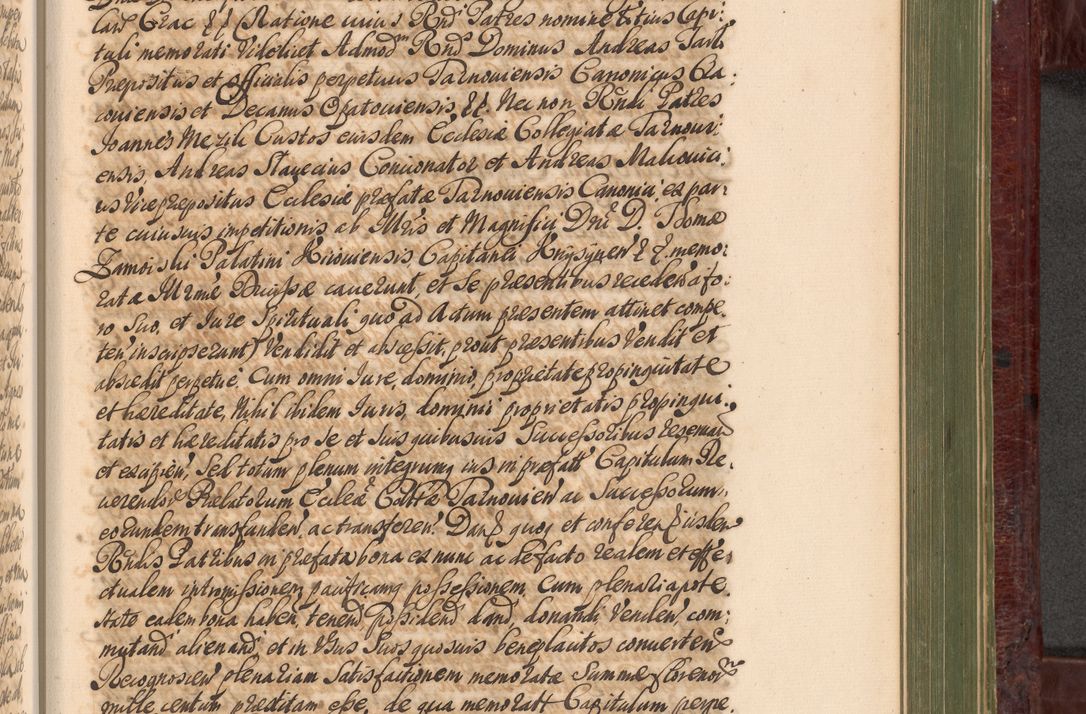 Card Crac et Ratione cuius Rndi Patres nomine totius Capi:
tuli memorati Videlicet Admodm Rnds Dominus Andreas Tarlo
Præpositus et Officialis perpetuus Tarnouiensis Canonicus Cra:
couiensis et Decanus Opatouiensis, &c. Nec non Rndi Patres
Joannes Mezik Custos eiusdem Ecclesiæ Collegiatæ Tarnoui
ensis Andreas Stayecius Concionator et Andreas Maliouici:
us Vicepræpositus Ecclesiæ præfatæ Tarnouiensis Canonici, ex par:
te cuiusuis impetitionis ab Illris et Magnifici Dni D. Thomæ
Zamoiski Palatini Kiiouiensis Capitanei Knyszynen &c. memo:
ratæ Illrmæ Ducissæ cauerunt, et se præsentibus receden a fo:
ro suo, et Jure Spirituali quo ad Actum præsentem attinet compe
ten inscripserunt) Vendidit et abscessit, prout præsentibus Vendit et
abscedit perpetue. Cum omni Jure, dominio, proprietate propinquitate
et hæreditate, Nihil ibidem Juris, dominii proprietatis propinqui:
tatis et hæreditatis pro se et suis quibusuis Successoribus reseruan
et excipien, Sed totum plenum integrumq ius in præfatt Capitulum Re:
uerendor Prælatorum Eccleæ Collræ Tarnouien ac Successorum
eorundem transfunden, ac transferen. Dan quoq et conferen eisdem
Rndis Patribus in præfata bona ex nunc ac de facto realem et effe:
ctualem intromissionem pacificamq possessionem, Cum plenaria pote
state eadem bona haben, tenend possidend dand, donandi Venden, com:
mutand alienand, et in Vsus suos quosuis beneplacitos conuerten
Recognoscen plenariam satisfactionem memoratæ Summæ florenor
mille centum præditam esse, de qua memoratt Capitulum perpe.